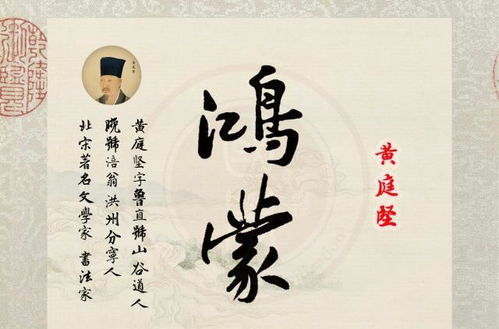 黄庭坚
鸿蒙
黄庭坚字鲁直號山谷道人
晚號涪翁洪州分寧人
北宋著名文學家 書法家